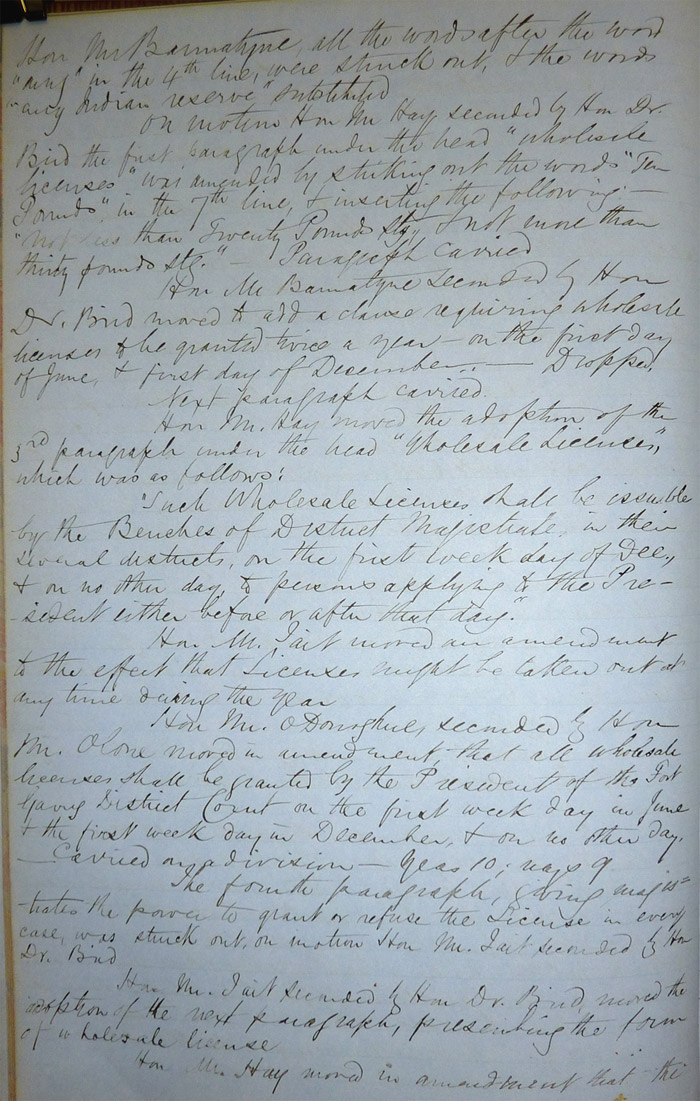 Hon Mr Bannatyne, all the words after the word
"any" in the 4th line, were struck out, & the words
"any Indian reserve" substituted
On motion Hon Mr Hay seconded by Hon Dr.
Bird the first paragraph under the head "wholesale
licenses" was amended by striking out the words "Ten
Pounds", in the 7th line, & inserting the following: —
"not less than Twenty Pounds stg, & not more than
thirty pounds stg." — Paragraph carried
Hon Mr Bannatyne seconded by Hon
Dr. Bird moved to add a clause requiring wholesale
licenses to be granted twice a year — on the first day
of June, & first day of December. — Dropped.
Next paragraph carried.
Hon Mr. Hay moved the adoption of the
3rd paragraph under the head "Wholesale Licenses",
which was as follows:
"Such Wholesale Licenses shall be issuable
by the Benches of District Magistrate, in their
several districts, on the first week day of Dec.,
& on no other day, to persons applying to the Pre-
-sident either before or after that day."
Hon. Mr. Tait moved an amendment
to the effect that Licenses might be taken out at
any time during the year
Hon Mr. O'Donoghue, seconded by Hon
Mr. Olone moved in amendment, that all wholesale
licenses shall be granted by the President of the Fort
Garry District Court on the first week day in June
& the first week day in December, & on no other day.
— Carried on a division — Yeas 10; nays 9
The fourth paragraph, giving magis=
-trates the power to grant or refuse the License in every
case, was struck out, on motion Hon Mr. Tait seconded by Hon
Dr. Bird
Hon Mr. Tait seconded by Hon Dr. Bird, moved the
adoption of the next paragraph, prescribing the form
of wholesale license
Hon Mr. Hay moved in amendment that the